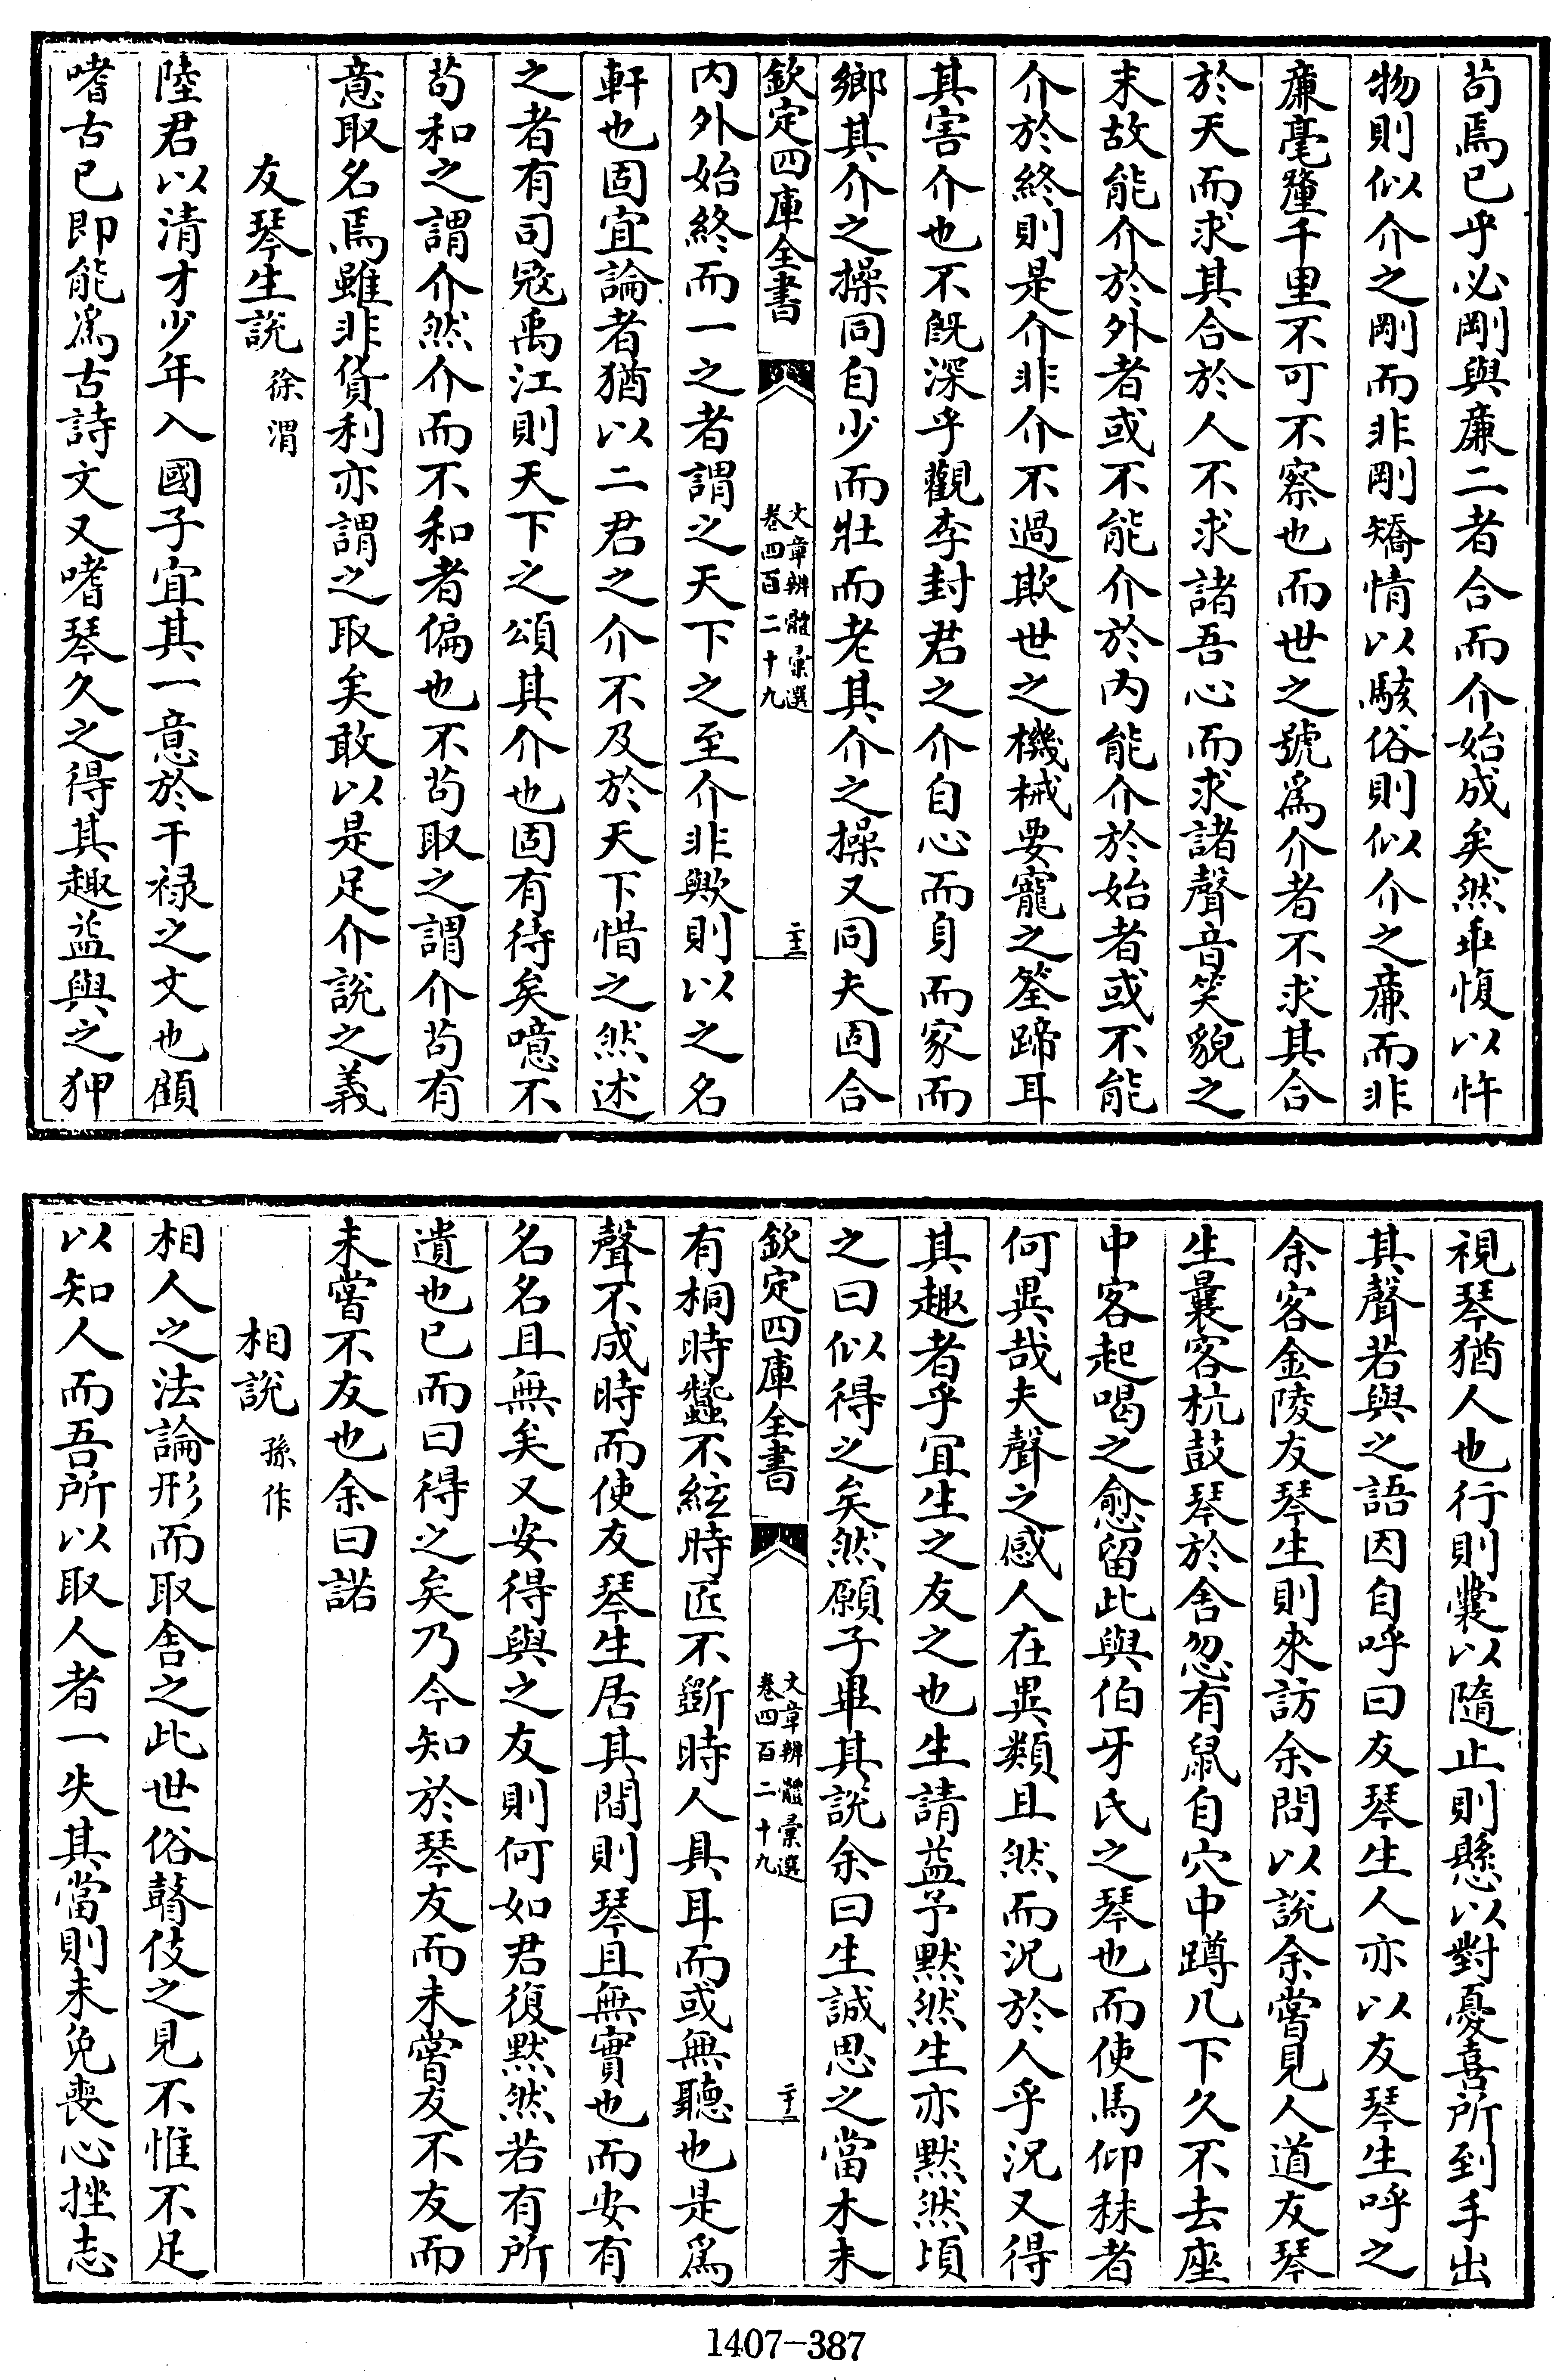 茍焉已乎必剛與亷二者合而介始成矣然乖愎以忤
物則似介之剛而非剛矯情以駭俗則似介之亷而非
亷毫釐千里不可不察也而世之號爲介者不求其合
於天而求其合於人不求諸吾心而求諸聲音笑貌之
末故能介於外者或不能介於内能介於始者或不能
介於終則是介非介不過欺世之機械要寵之筌蹄耳
其害介也不旣深乎觀李封君之介自心而身而家而
鄉其介之操同自少而壯而老其介之操又同夫固合
欽定四庫全書
文章辨體彚選
卷四百二十九
二十三
内外始終而一之者謂之天下之至介非歟則以之名
軒也固宜論者猶以二君之介不及於天下惜之然述
之者有司冦禹江則天下之頌其介也固有待矣噫不
茍和之謂介然介而不和者偏也不茍取之謂介茍有
意取名焉雖非貨利亦謂之取矣敢以是足介說之義
友琴生說 徐渭
陸君以清才少年入國子宜其一意於干祿之文也顧
嗜古已即能爲古詩文又嗜琴久之得其趣益與之狎
視琴猶人也行則囊以隨止則懸以對憂喜所到手出
其聲若與之語因自呼曰友琴生人亦以友琴生呼之
余客金陵友琴生則來訪余問以說余嘗見人道友琴
生曩客杭鼓琴於舎忽有鼠自穴中蹲几下久不去座
中客起喝之愈留此與伯牙氏之琴也而使馬仰秣者
何異哉夫聲之感人在異類且然而况於人乎况又得
其趣者乎宜生之友之也生請益予黙然生亦黙然頃
之曰似得之矣然願子畢其說余曰生誠思之當木未
欽定四庫全書
文章辨體彚選
卷四百二十九
二十三
有桐時蠶不絃時匠不斵時人具耳而或無聽也是爲
聲不成時而使友琴生居其間則琴且無實也而安有
名名且無矣又安得與之友則何如君復黙然若有所
遺也已而曰得之矣乃今知於琴友而未嘗友不友而
未嘗不友也余曰諾
相說 孫作
相人之法論形而取舍之此世俗瞽伎之見不惟不足
以知人而吾所以取人者一失其當則未免喪心挫志
1407-387